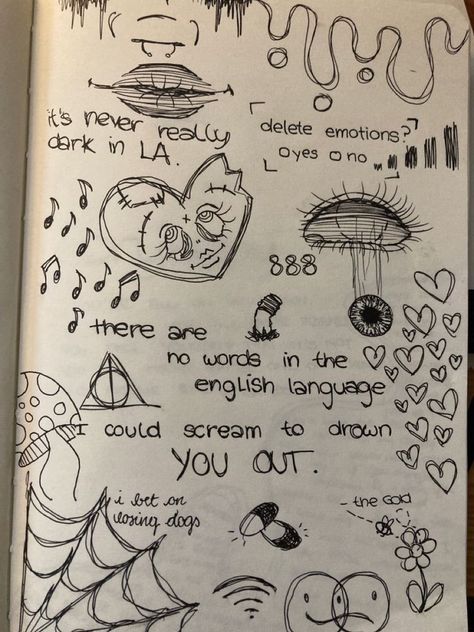 it's never really
dark in LA.
delete emotions?
yes no
888
there are
no words in the
english language
I could scream to drown
YOU OUT.
i bet on
losing dogs
- the cold